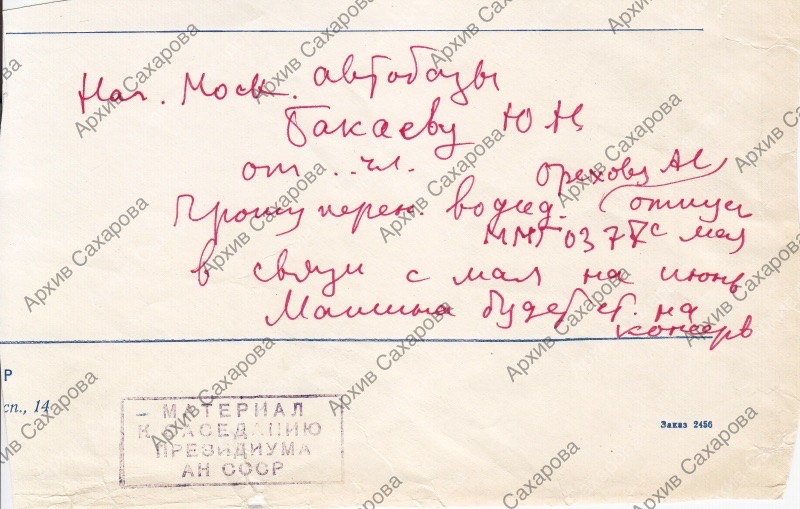 Нач. Моск. автобазы
Бакаеву Ю Н
от . . чл.
Прошу перен. водид. Орехову АС (отпуск
ММГ 0377 с мая
в связи с мая на июнь
Машина будет ст. на
консерв
Р
сп., 14
Заказ 2456
МАТЕРИАЛ
К ЗАСЕДАНИЮ
ПРЕЗИДИУМА
АН СССР
Архив Сахарова